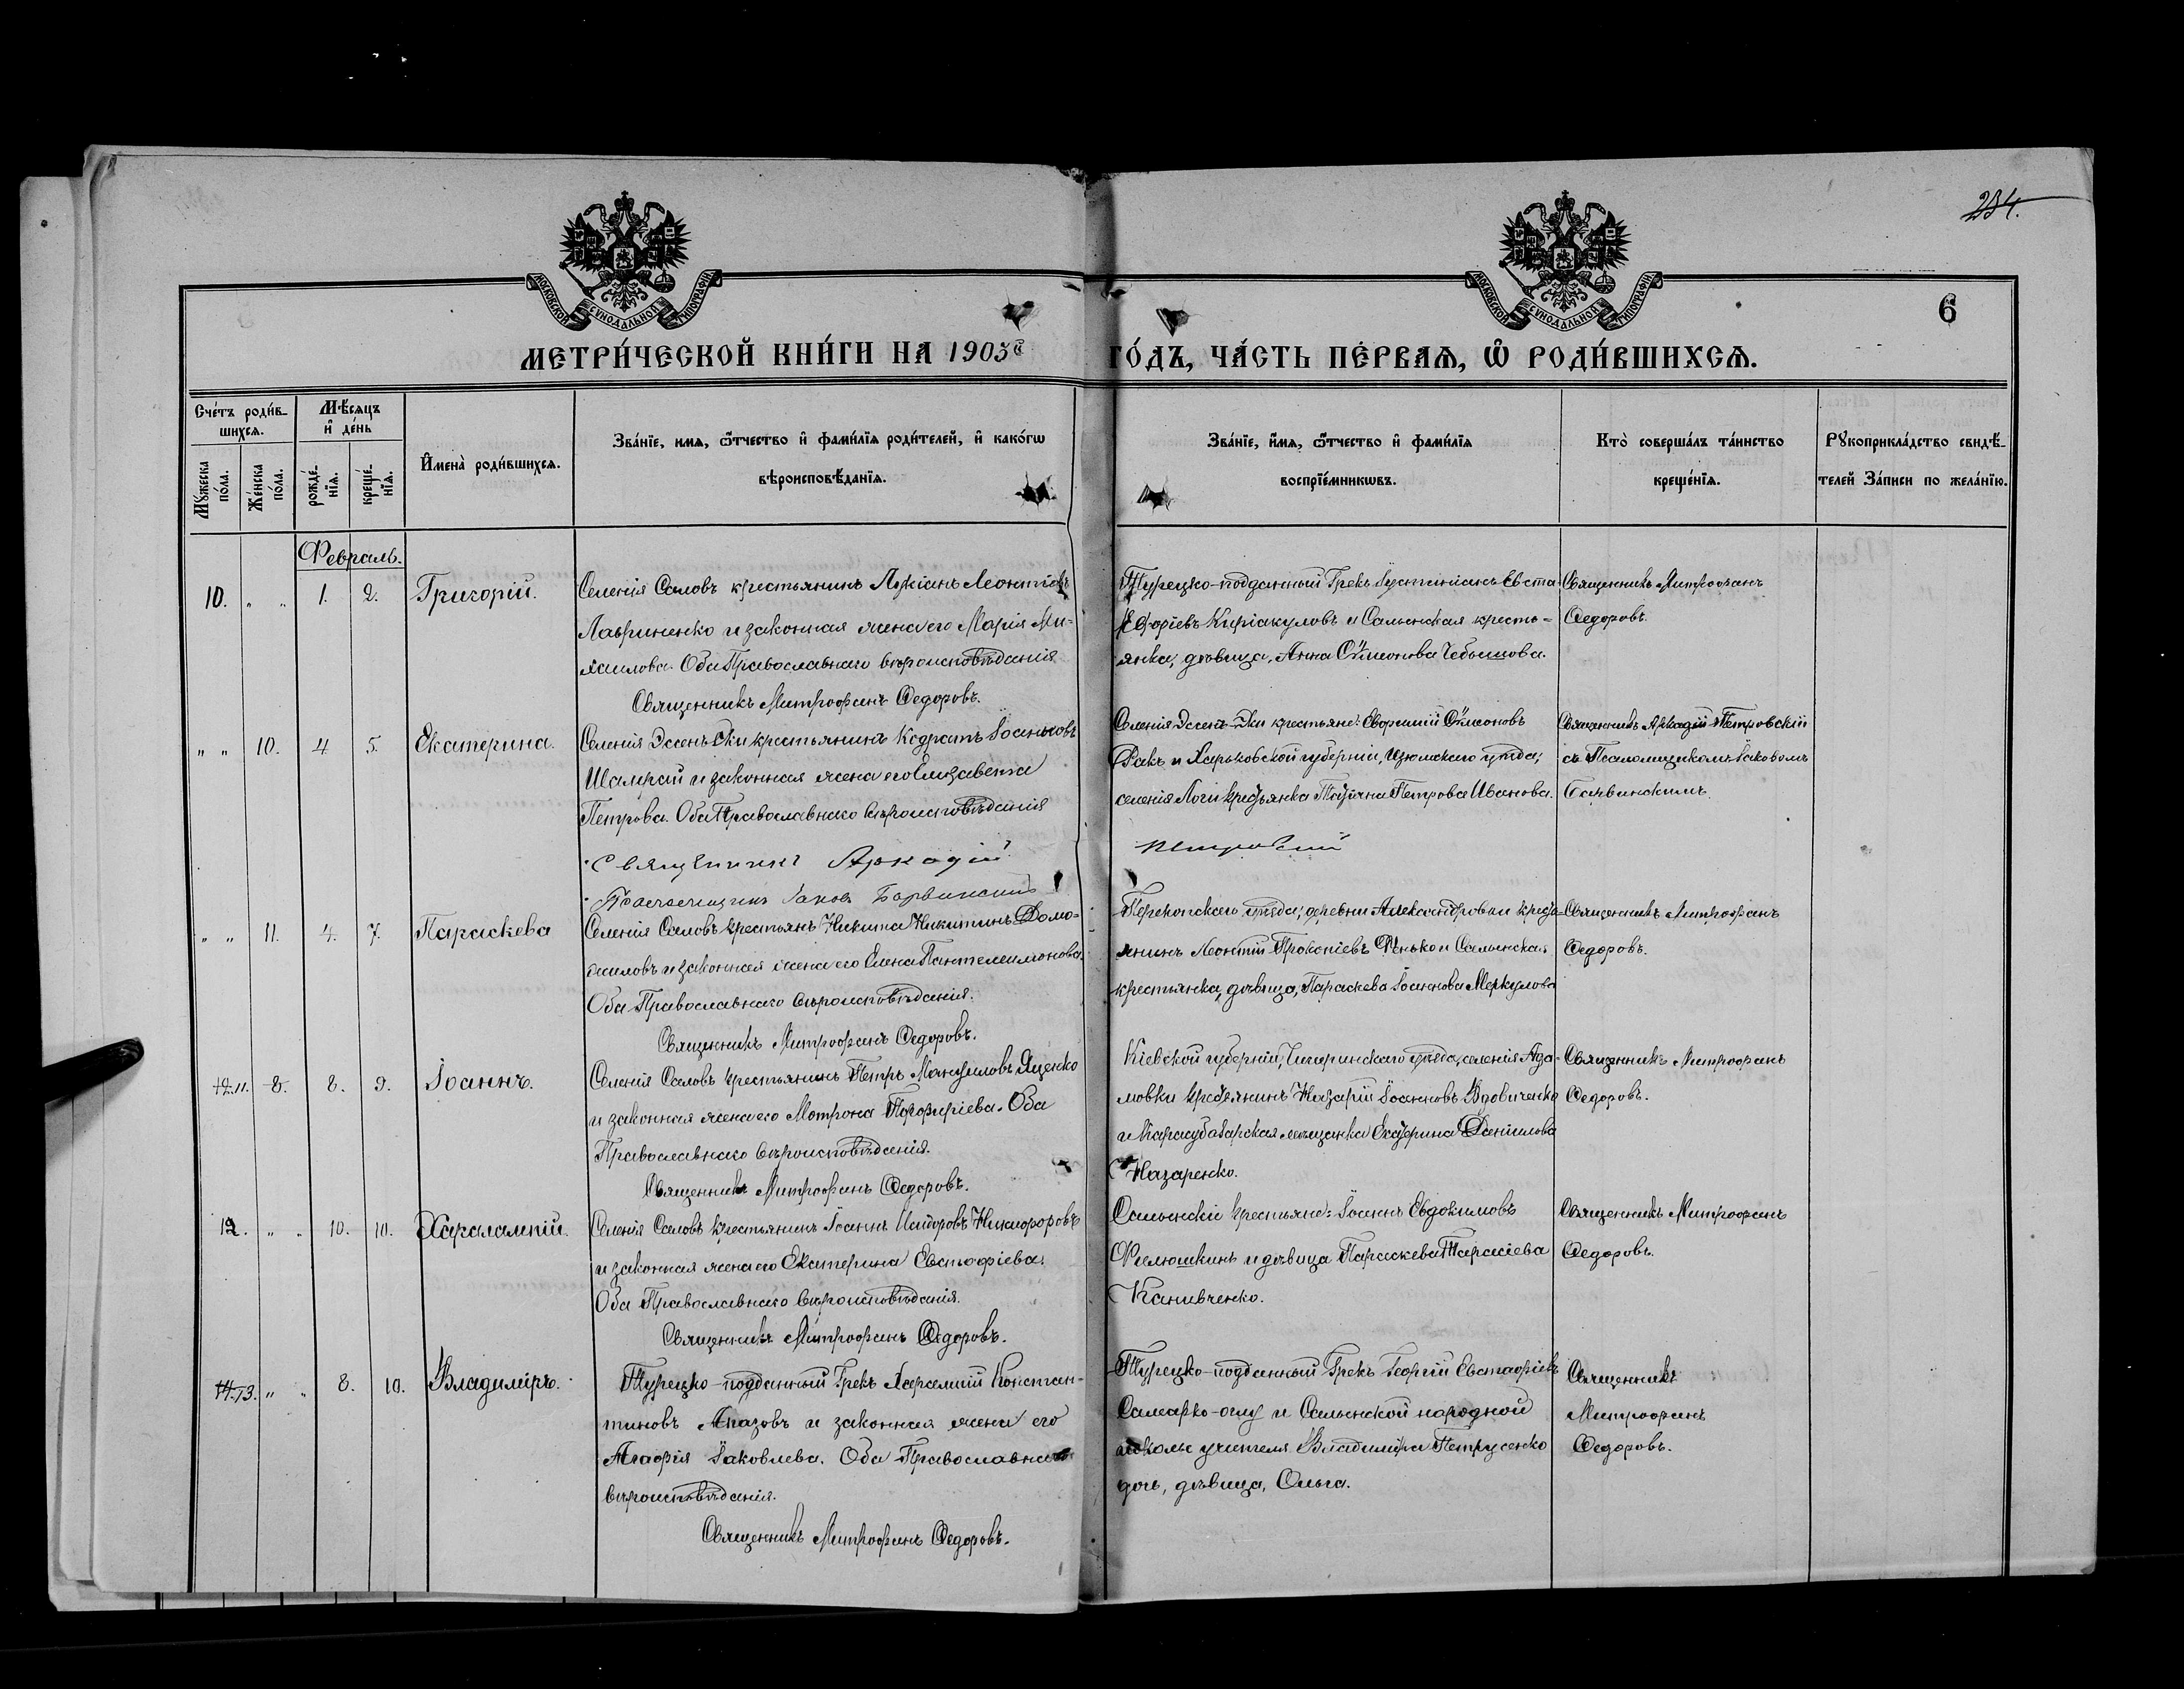 284.
МОСКОВСКОЙ СУНОДАЛЬНОЙ ТИПОГРАФІИ
МОСКОВСКОЙ СУНОДАЛЬНОЙ ТИПОГРАФІИ
6
МЕТРИ́ЧЕСКОЙ КНИ́ГИ НА 1903й ГО́ДЪ, ЧА́СТЬ ПЕ́РВАѦ, Ѡ҆ РОДИ́ВШИХСѦ.
Сче́тъ роди́в-
шихсѧ.
Мꙋ́жеска по́ла.
Же́нска по́ла.
Мѣ́сѧцъ
и҆ де́нь
рожде́-
нїѧ.
креще́-
нїѧ.
И҆мена̀ роди́вшихсѧ.
Зва́нїе, имѧ, ѻ҆́тчество и҆ фами́лїѧ роди́телей, и҆ како́гѡ
вѣроисповѣ́данїѧ.
Зва́нїе, и҆́мѧ, ѻ҆́тчество и҆ фами́лїѧ
воспрїе́мникѡвъ.
Кто̀ соверша́лъ та́инство
креще́нїѧ.
Рꙋкоприкла́дство свидѣ́-
телей За́писи по жела́нїю.
Февраль.
10. " " 1. 2. Григорій.
Селенія Саловъ крестьянинъ Лукіанъ Леонтіевъ
Лавриненко и законная жена его Марія Ми-
хаилова. Оба Православнаго вѣроисповѣданія
Священникъ Митрофанъ Федоровъ.
Турецко-подданный Грекъ Іустиніанъ Евста-
Киріакуловъ и Сальнская кресть-
янка, дѣвица, Анна Сѵмеонова Чебышова.
Священникъ Митрофанъ
Федоровъ.
" " 10. 4 5. Екатерина.
Селенія Эссенъ Эки крестьянинъ Кодратъ Іоанновъ
Шамрай и законная жена его Елизавета
Петрова. Оба Православнаго вѣроисповѣданія
Священникъ Аркадій Петровскій
Псаломщикъ Іаковъ Барвинскій
Селенія Эссенъ-Эки крестьяне: Евфимій Сѵмеоновъ
Ракъ и Харьковской губерніи, Изюмскаго уѣзда,
селенія Логи крестьянка Татіана Петрова Иванова.
Священникъ Аркадій Петровскій
съ Псаломщикомъ Іаковомъ
Барвинскимъ.
" " 11. 4. 7. Параскева
Селенія Саловъ крестьянъ Никита Никитинъ Домо-
жиловъ и законная жена его Елена Пантелеимонова.
Оба Православнаго вѣроисповѣданія.
Священникъ Митрофанъ Федоровъ.
Перекопскаго уѣзда, деревни Александровки кресть-
янинъ Леонтій Прокопіевъ Фенько и Сальнская
крестьянка, дѣвица, Параскева Іоаннова Меркулова
Священникъ Митрофанъ
Федоровъ.
12. 11. 8. 8. 9. Іоаннъ.
Селенія Саловъ крестьянинъ Петръ Мануиловъ Яценко
и законная жена его Матрона Порфиріева. Оба
Православнаго вѣроисповѣданія.
Священникъ Митрофанъ Федоровъ.
Кіевской губерніи, Чигиринскаго уѣзда, селенія Ада-
мовки крестьянинъ Назарій Іоанновъ Вдовиченко
и Карасубазарская мѣщанка Екатерина Даніилова
Назаренко.
Священникъ Митрофанъ
Федоровъ.
12. " " 10. 10. Харалампій.
Селенія Саловъ крестьянинъ Іоаннъ Исидоровъ Никифоровъ
и законная жена его Екатерина Евстафіева.
Оба Православнаго вѣроисповѣданія.
Священникъ Митрофанъ Федоровъ.
Сальнскіе крестьяне: Іоаннъ Евдокимовъ
Филюшкинъ и дѣвица Параскева Тарасіева
Канивченко.
Священникъ Митрофанъ
Федоровъ.
14. 13. " " 8. 10. Владиміръ.
Турецко-подданный Грекъ Харлампій Констан-
тиновъ Апазовъ и законная жена его
Агафія Іаковлева. Оба Православнаго
вѣроисповѣданія.
Священникъ Митрофанъ Федоровъ.
Турецко-подданный Грекъ Георгій Евстафіевъ
Самарко-оглу и Сальнской народной
школы учителя Владиміра Петрусенко
дочь, дѣвица, Ольга.
Священникъ
Митрофанъ
Федоровъ.